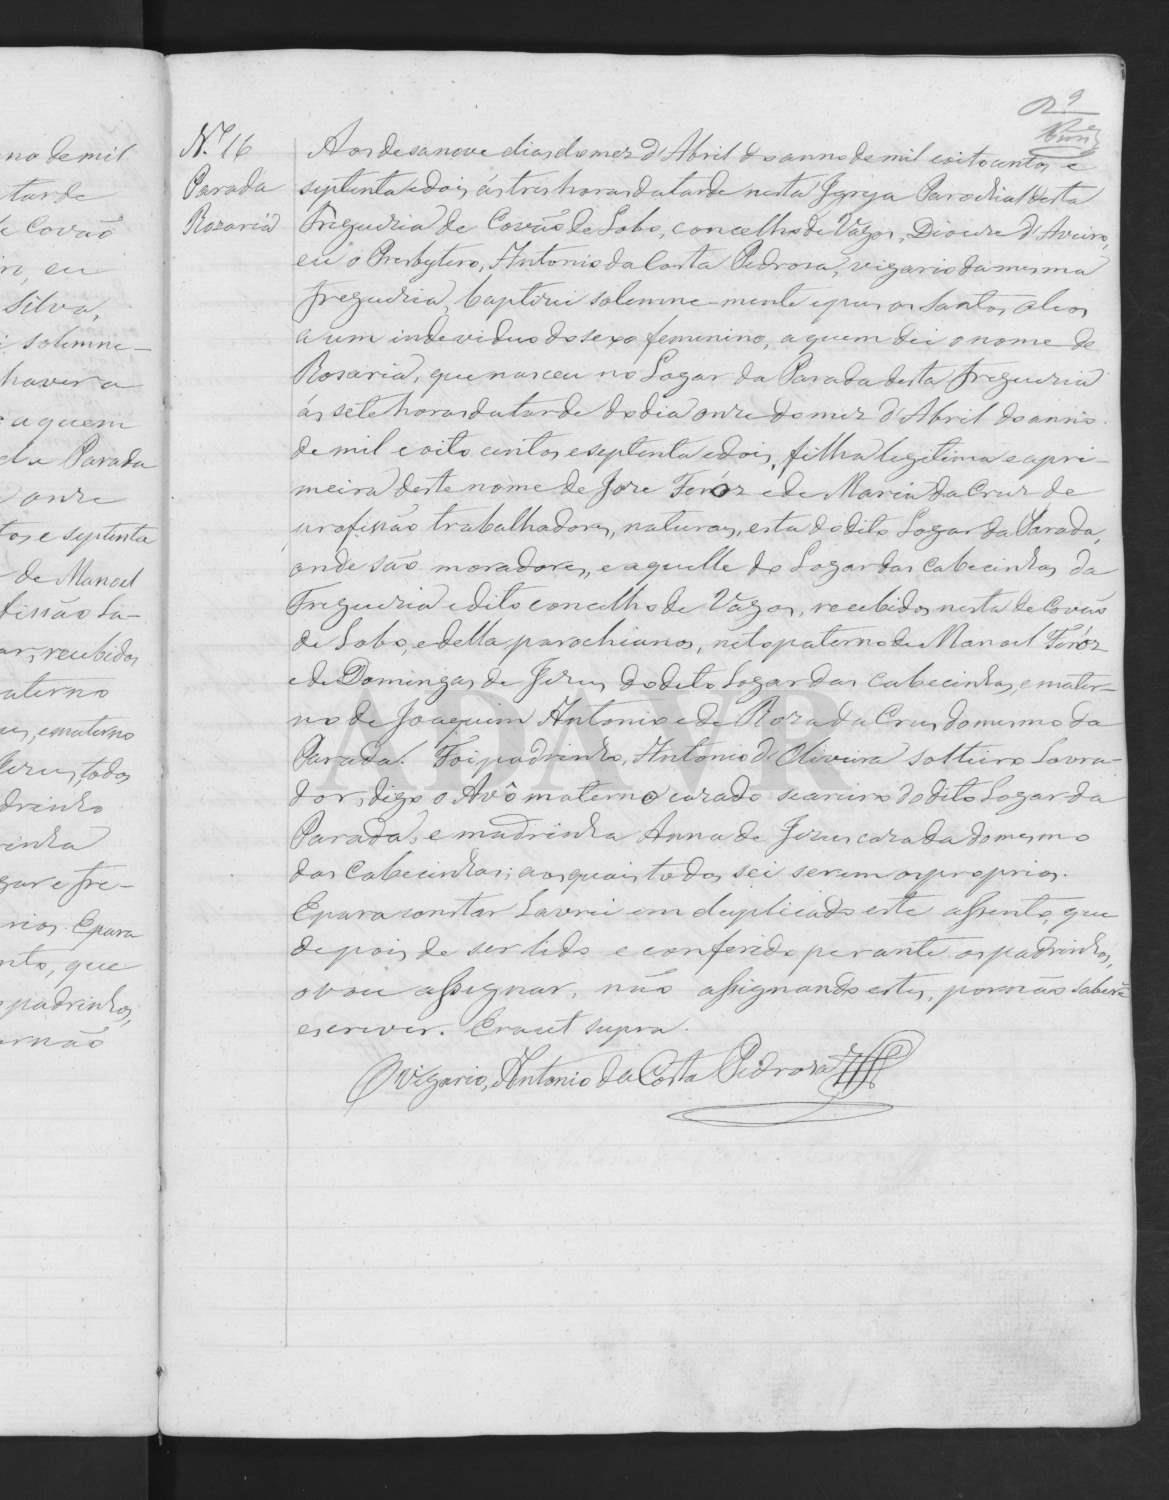 no de mil
tarde
e Covão
eu
Silva,
i solemne-
havera
a quem
da Parada
onze
tos e septenta
de Manoel
fissão La-
ar, recebidos
aterno
us, e materno
Jezus, todos
drinho
rinha
gar e fre-
rios. E para
nto, que
padrinhos,
or não
9
N.º 16
Parada
Rozaria
Aos desanove dias do mez d'Abril do anno de mil e oitocentos e
septenta e dois, ás tres horas da tarde nesta Igreja Parochial desta
Freguezia de Covão de Lobo, concelho de Vagos, Diocese d'Aveiro,
eu o Presbytero, Antonio da Costa Pedrosa, vigario da mesma
freguezia, baptizei solemne-mente e pus os Santos oleos
a um individuo do sexo femenino, a quem dei o nome de
Rosaria, que nasceu no Logar da Parada desta freguezia
ás sete horas da tarde do dia onze do mez d'Abril do anno
de mil e oito centos e septenta e dois, filha legitima e a pri-
meira deste nome de Joze Ferór e de Maria da Cruz de
profissão trabalhadores, naturaes, esta do dito Logar da Parada,
onde são moradores, e aquelle do Logar das Cabecinhas da
Freguezia e dito concelho de Vágos, recebidos nesta de Covão
de Lobo, e della parochianos, neto paterno de Manoel Ferór
e de Domingas de Jezus do dito Logar das Cabecinhas, e mater-
no de Joaquim Antonio e de Roza da Cruz do mesmo da
Parada. Foi padrinho, Antonio d'Oliveira solteiro Lavra-
dor, digo o Avô materno cazado seareiro do dito Logar da
Parada, e madrinha Anna de Jezus cazada do mesmo
das Cabecinhas; aos quais todos sei serem os proprios.
E para constar Lavrei em duplicado este assento, que
depois de ser lido e conferido perante os padrinhos,
o vou assignar, não assignando estes, por não saberẽ
escrever. Era ut supra.
O vigario, Antonio da Costa Pedrosa
ADAVR